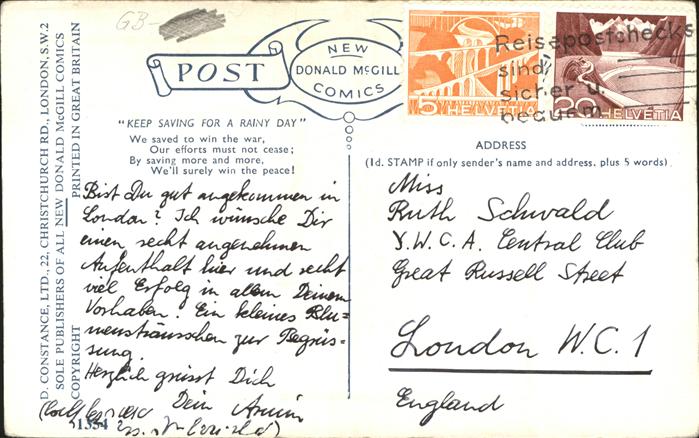 GB-
POST
NEW
DONALD McGILL
COMICS
5 HELVETIA
20 HELVETIA
Reisepostchecks
sind
sicher u.
bequem
D. CONSTANCE, LTD., 22, CHRISTCHURCH RD., LONDON, S.W.2
SOLE PUBLISHERS OF ALL NEW DONALD McGILL COMICS
COPYRIGHT PRINTED IN GREAT BRITAIN
"KEEP SAVING FOR A RAINY DAY"
We saved to win the war,
Our efforts must not cease;
By saving more and more,
We'll surely win the peace!
ADDRESS
(1d. STAMP if only sender's name and address, plus 5 words)
Bist Du gut angekommen in
London? Ich wünsche Dir
einen recht angenehmen
Aufenthalt hier und recht
viel Erfolg in allem Deinem
Vorhaben. Ein kleines Blu=
mensträusschen zur Begrüs=
sung.
Herzlich grüsst Dich
Dein Armin
1354
Miss
Ruth Schwald
Y.W.C.A. Central Club
Great Russell Street
London W.C.1
England